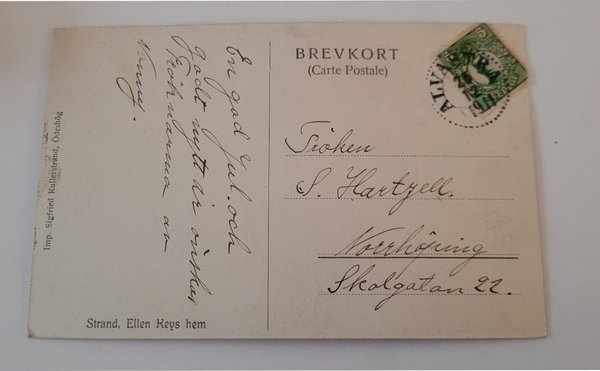 BREVKORT
(Carte Postale)
ALVASTRA
En god Jul och
godt nytt år önskas
Fröknarna av
Nanny.
Fröken
S. Hartzell.
Norrköping
Skolgatan 22.
Imp. Sigfried Kullerstrand, Ödeshög
Strand, Ellen Keys hem